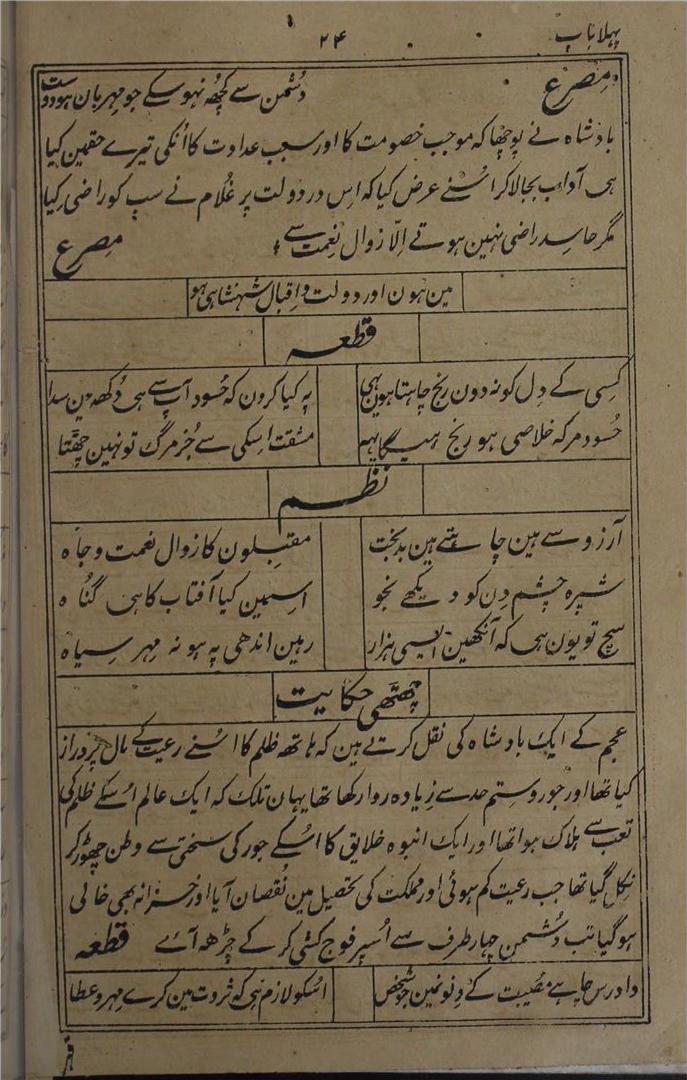 پہلا باب ۲۴
مصرع دشمن سے کچھ نہوسکے جو مہربان ہو دوست
بادشاہ نے پوچھا کہ موجب خصومت کا اور سبب عداوت کا اُنکی تیرے حقمین کیا
ہی آداب بجالا کر اُسنے عرض کیا کہ اس در دولت پر غُلام نے سب کو راضی رکیا
مگر حاسد راضی نہین ہوتے اِلّا زوال نعمت سے مصرع
مین ہون اور دولت و اقبال شہنشاہی ہو
قطعہ
کسِی کے دِل کو نہ دون رنج چاہتا ہون یہی پہ کیا کرون کہ حُسود آپ سے ہی دُکھہ مین سدا
حُسود مرکہ خلاصی ہو رنج سے یہہ مشقت اسکی سے جُز مرگ تو نہین چھٹتا
نظم
آرزو سے ہین چاہتے ہین بدبخت مقبلون کا زوال نعمت و جاہ
شپرہ چشم دِن کو دیکھے نجو اسمین کیا آفتاب کا ہی گناہ
سچ تو یون ہی کہ آنکھین ایسی ہزار رہین اندھی پہ ہو نہ مہر سیاہ
چھٹی حکایت
عجم کے ایک بادشاہ کی نقل کرتے ہین کہ ہاتھہ ظلم کا اُسنے رعیت کے مال پر دراز
کیا تھا اور جور و ستم حد سے زیادہ روا رکھا تھا یہان تلک کہ ایک عالم اُسکے ظلم کی
تعب سے ہلاک ہوا تھا اور ایک انبوہ خلایق کا اُسکے جور کی سختی سے وطن چھوڑ کر
نِکل گیا تھا جب رعیت کم ہوئی اور مملکت کی تحصیل مین نُقصان آیا اور خزانہ بھی خالی
ہو گیا تب دُشمن چار طرف سے اُسپر فوج کشی کر کے چڑھہ آئے قطعہ
دادرس چاہے مُصیبت کے دِنو نمین جو شخص اُسکو لازم ہی کہ ثروت مین کرے مہر و عطا